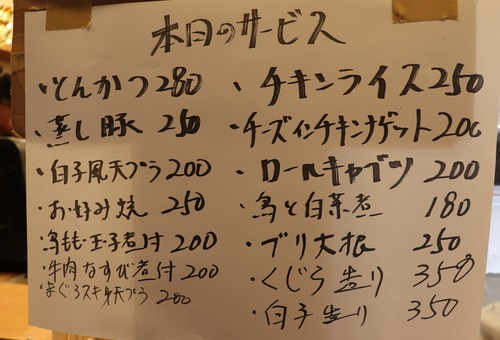 本日のサービス
・とんかつ 280
・蒸し豚 250
・白子風天プラ 200
・お好み焼 250
・鳥もも・玉子煮付 200
・牛肉なすび煮付 200
・まぐろスキ身天プラ 200
・チキンライス 250
・チーズインチキンナゲット 200
・ロールキャベツ 200
・鳥と白菜煮 180
・ブリ大根 250
・くじら造り 350
・白子造り 350